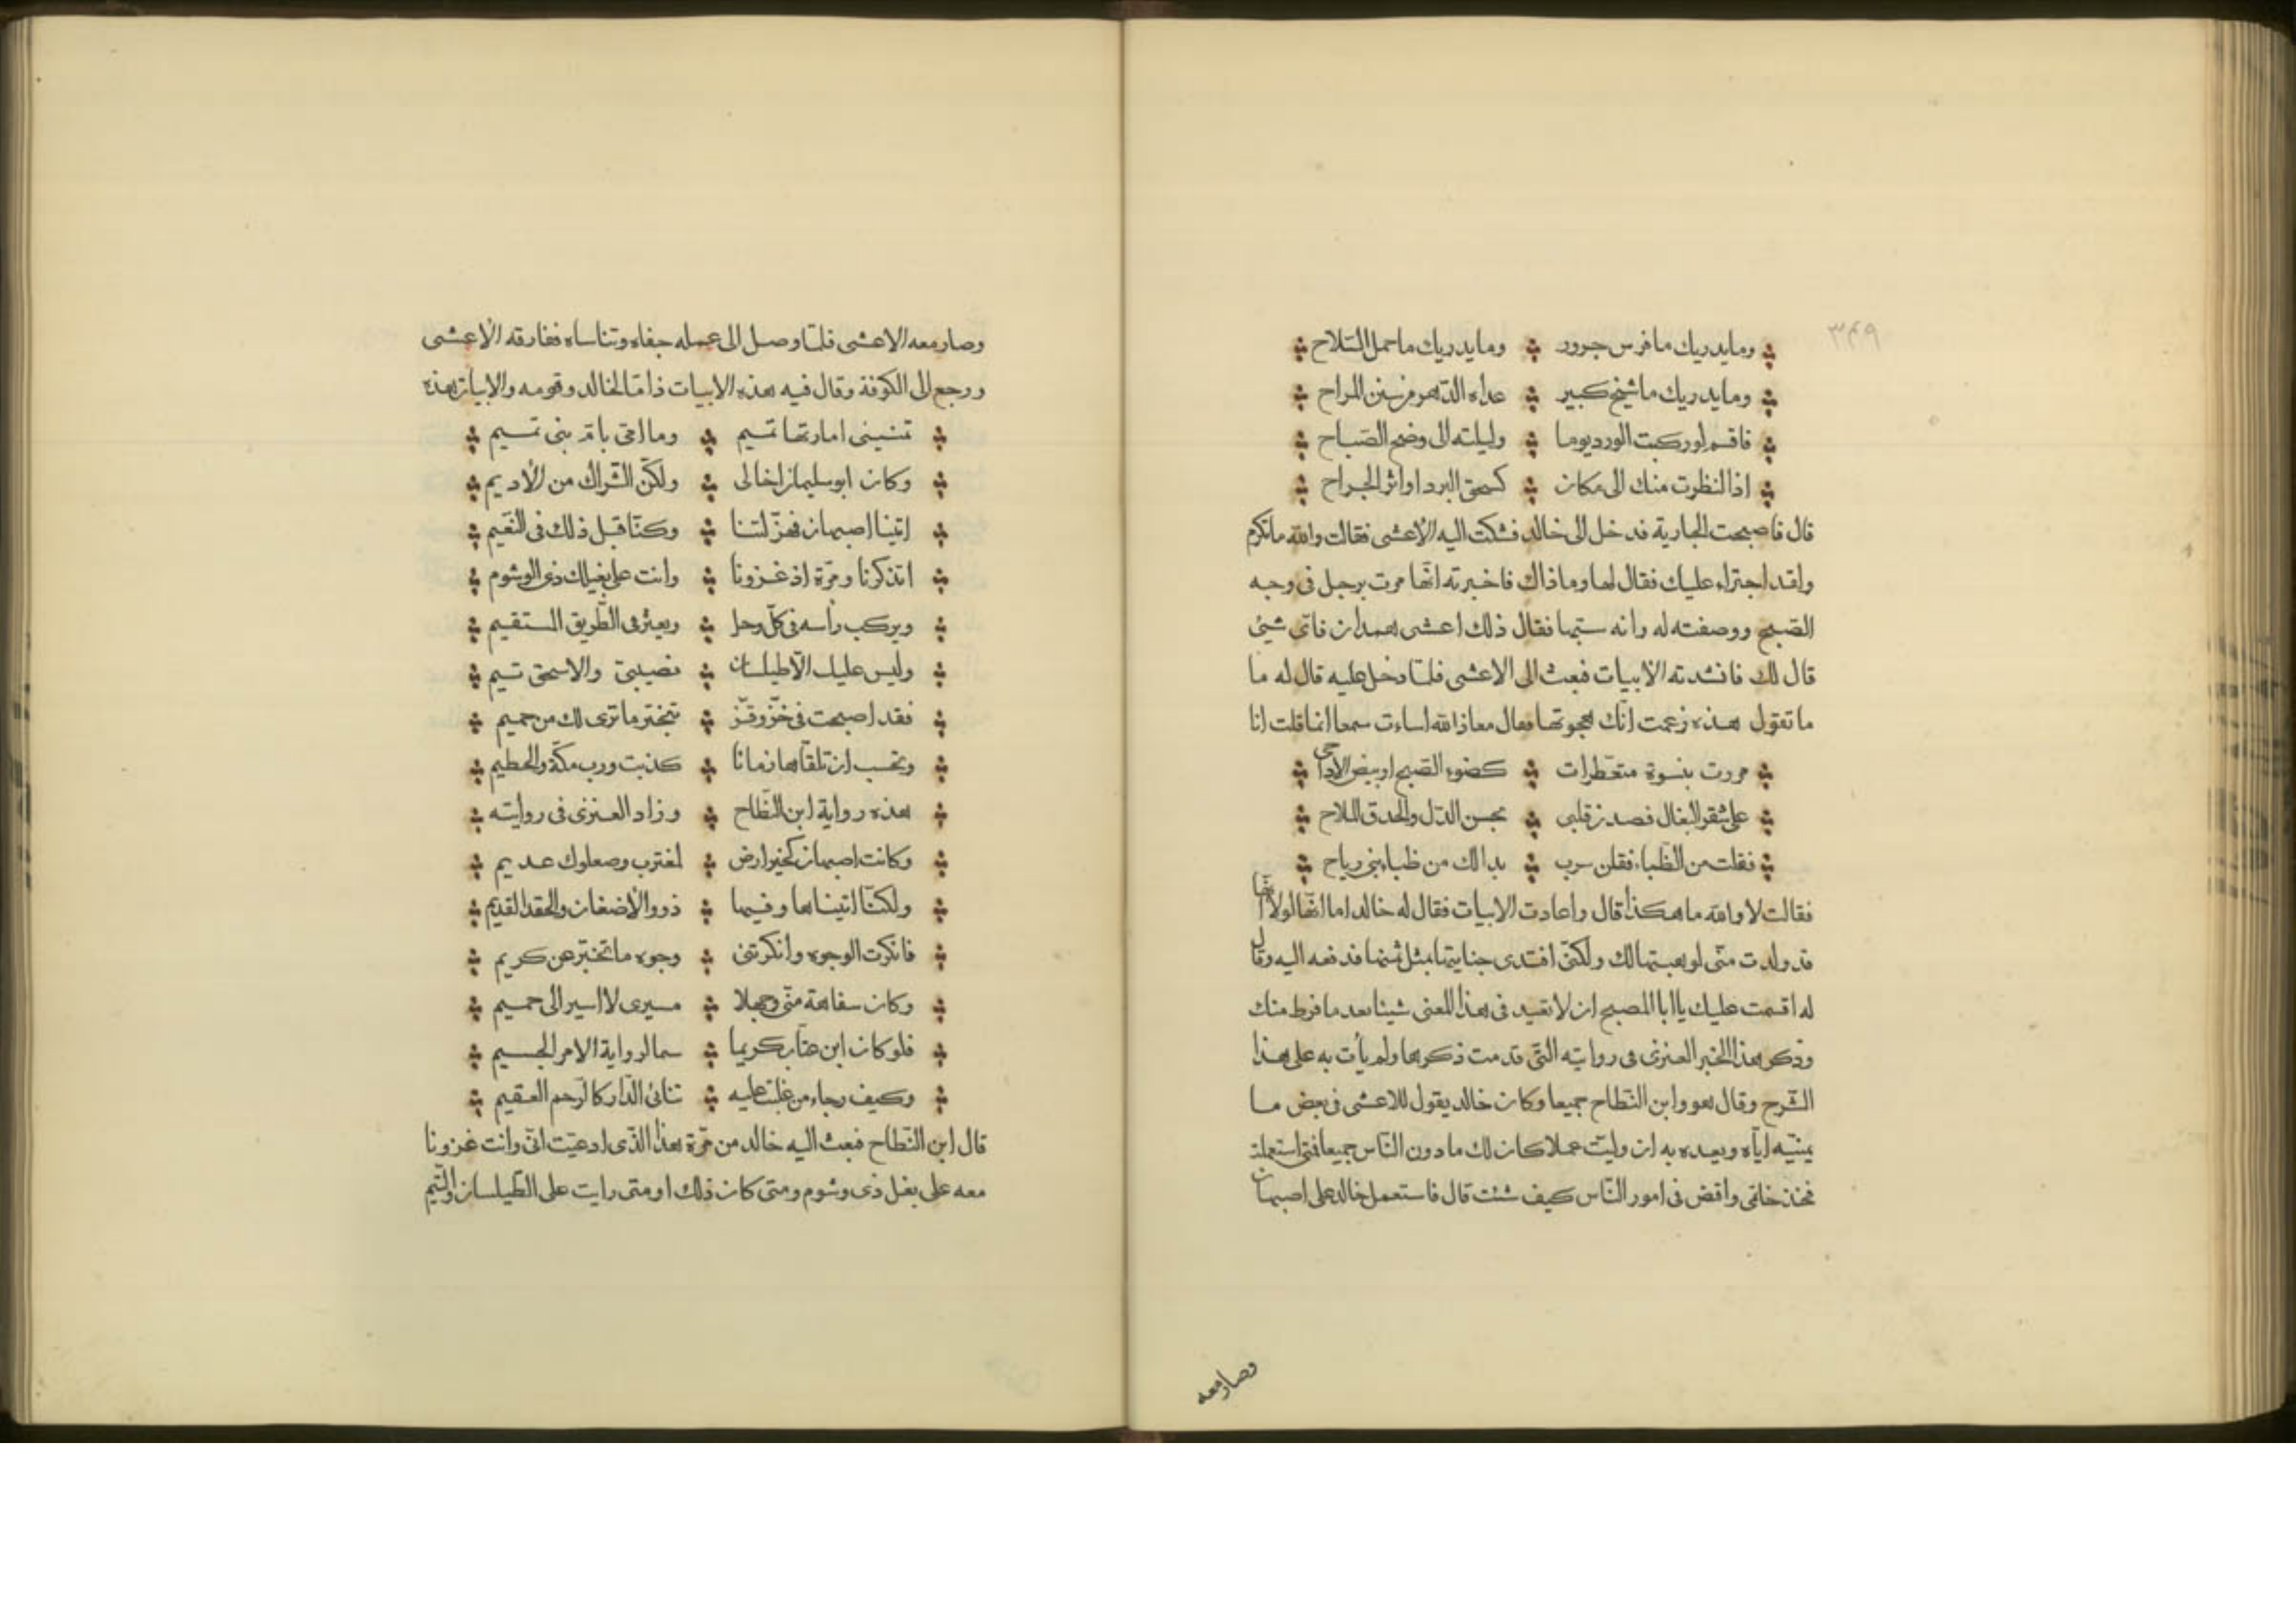 ٣٤٩
وما يدريك ما فرس جرور وما يدريك ما حمل السّلاح
وما يدريك ما شيخ كبير عداه الدّهر من سنن المراح
فاقسم لو ركبت الورد يوما وليلته الى وضح الصّباح
اذا لنظرت منك الى مكان كسحق البرد او اثر الجراح
قال فاصبحت الجارية فدخل الى خالد فشكت اليه الأعشى فقالت والله ما تكرم
ولقد اجتراء عليك فقال لها وما ذاك فاخبرته انّها مرت برجل فى وجه
الصّبح ووصفته له وانه سبّها فقال ذلك اعشى همدان فاىّ شئ
قال لك فانشدته الأبيات فبعث الى الاعشى فلمّا دخل عليه قال له ما
ما تقول هذه زعمت انّك هجوتها فقال معاذ الله اساءت سمعا انما قلت انا
مررت بنسوة متعطرات كضوء الصّبح او بيض الاداحى
على شقر البغال فصدن قلبى بحسن الدّل والحدق الملاح
فقلت من الظّباء فقلن سرب بدا لك من ظباء بنى رياح
فقالت لا والله ما هكذا قال واعادت الابيات فقال له خالد اما انّها لولا انّها
قد ولدت منّى لوهبتها لك ولكنّى افتدى جنايتها بمثل ثمنها فدفعه اليه وقال
له اقسمت عليك يا ابا المصبح ان لا تعيد فى هذا المعنى شيئا بعد ما فرط منك
وذكر هذا الخبر العنزى فى روايته التّى قدمت ذكرها ولم يأت به على هذا
الشّرح وقال هو وابن النّطاح جميعا وكان خالد يقول للاعشى فى بعض ما
يمنيّه ايّاه ويعده به ان وليت عملا كان لك ما دون النّاس جميعا فمتى استعملت
فخذ خاتمى واقض فى امور النّاس كيف شئت قال فاستعمل خالد على اصبهان
وصار معه
وصار معه الاعشى فلمّا وصل الى عمله جفاه وتناساه ففارقه الأعشى
ورجع الى الكوفة وقال فيه هذه الابيات ذامّا لخالد وقومه والابيات هذه
تمنينى امارتها تميم وما امّى بامّ بنى تميم
وكان ابو سليمان اخا لى ولكنّ الشّراك من الأديم
اتينا اصبهان فهزّلتنا وكنّا قبل ذلك فى النّعيم
اتذكرنا ومرّة اذ غزونا وانت على بغيلك ذى الوشوم
ويركب رأسه فى كلّ وحل ويعثر فى الطّريق المستقيم
وليس عليك الّا طيلسان نصيبىّ والا سحق نيم
فقد اصبحت فى خزّ وقزّ تبختر ما ترى لك من حميم
وتحسب ان تلقّاها زمانا كذبت ورب مكّة والحطيم
هذه رواية ابن النّطاح وزاد العنزى فى روايته
وكانت اصبهان كخير ارض لمغترب وصعلوك عديم
ولكنّا اتيناها وفيها ذوو الأضغان والحقد القديم
فانكرت الوجوه وانكرتنى وجوه ما تخبّر عن كريم
وكان سفاهة منّى وجهلا مسيرى لا اسير الى حميم
فلو كان ابن عتاب كريما سما لرواية الامر الجسيم
وكيف رجاء من غلبت عليه تنائى الدّار كالرّحم العقيم
قال ابن النّطاح فبعث اليه خالد من مرّة هذا الذّى ادعيت انّى وانت غزونا
معه على بغل ذى وشوم ومتى كان ذلك او متى رايت على الطّيلسان والنّيم